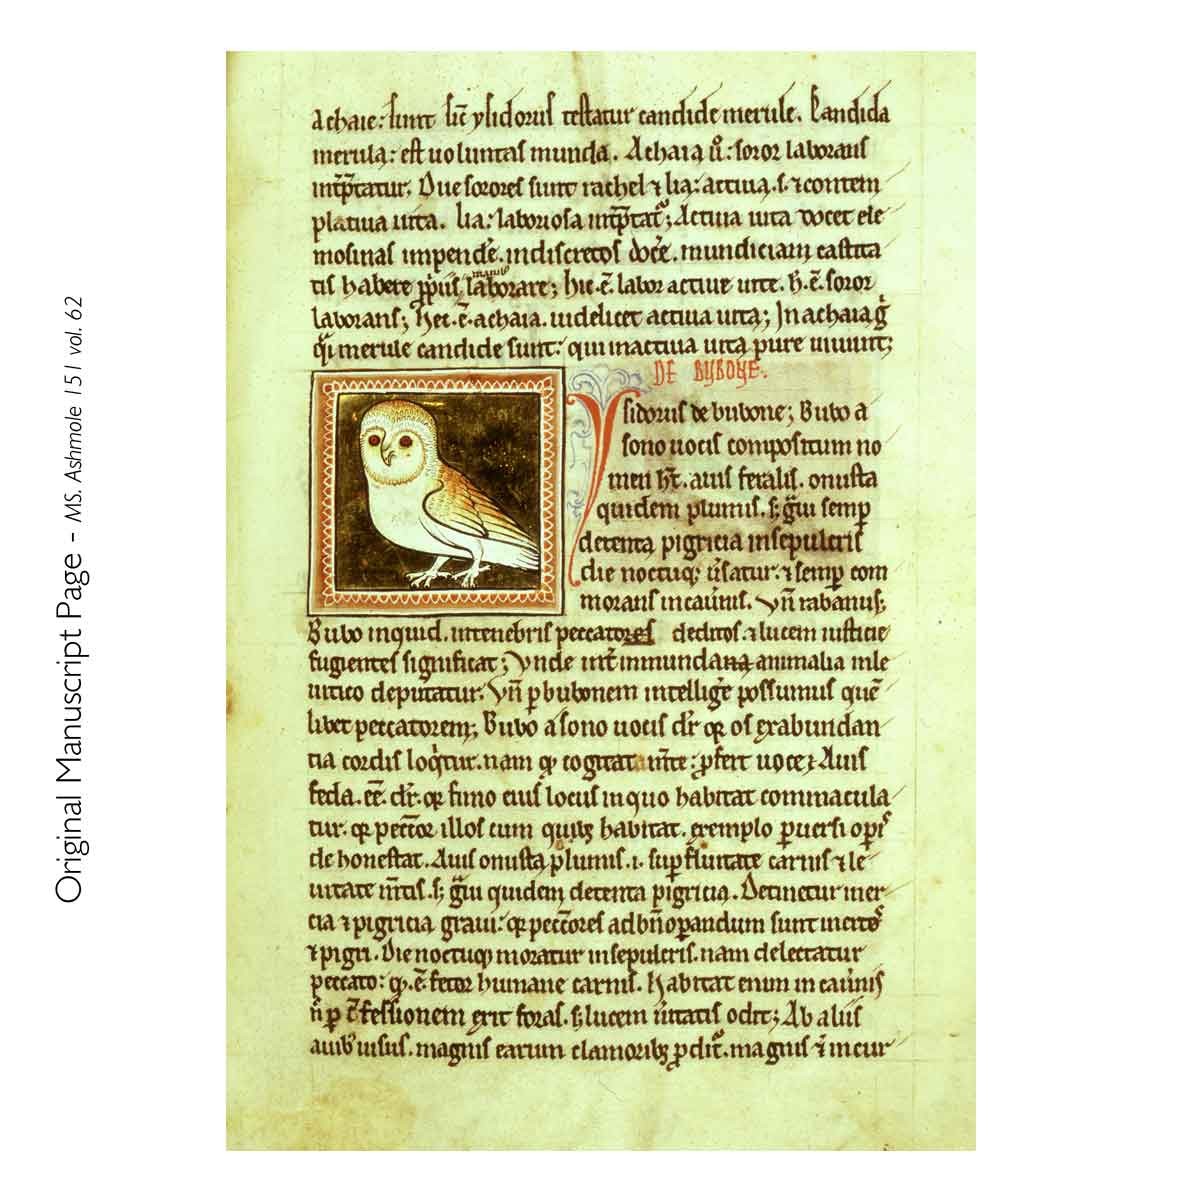 Original Manuscript Page - MS. Ashmole 151 vol. 62
achaie: sunt sic̄ ysidorus testatur candide merule. Candida
merula: est uoluntas munda. Achaia ů: soror laborans
int̄p̄tatur. Due sorores sunt rachel ⁊ lia: actiua .s. ⁊ contem
platiua uita. lia: laboriosa int̄p̄tat᷑; Actiua uita docet ele
mosinas impendē. indiscretos docē. mundiciam castita
manib᷒
tis habere pp̄iis laborare; hic .ē. labor actiue uite. h̄ .ē. soror
laborans; hec .ē. achaia. uidelicet actiua uita; In achaia g̊
qͥ merule candide sunt: qui in actiua uita pure uiuunt;
DE BVBONE.
Ysidorus de bubone; Bubo a
sono uocis compositum no
men ht̄. auis feralis. onusta
quidem plumis. s; gͣui semp̲
detenta pigricia in sepulcris
die noctuq; ůsatur. ⁊ semp̲ com
morans in cauͥnis. Vn̄ rabanus;
Bubo inquid. in tenebris peccatores deditos. ⁊ lucem iusticie
fugientes significat; Vnde int̄ inmunda animalia in le
uitico deputatur. Vn̄ p̲ bubonem intelligē possumus quē
libet peccatorem; Bubo a sono uocis dr̄ qͥ os ex abundan
tia cordis loqͥtur. nam qͩ cogitat mīte: p̲fert uoce; Auis
feda .eē. dr̄. qͥ fimo eius locus in quo habitat commacula
tur. qͥ pecc̄or illos cum quib; habitat. exemplo p̲uersi op̲is
dehonestat. Auis onusta plumis .i. sup̲fluitate carnis ⁊ le
uitate m̄tis. s; gͣui quidem detenta pigricia. Detinetur iner
cia ⁊ pigricia graui: qͥ pecc̄ores ad bn̄ op̲andum sunt inertes
⁊ pigri. Die noctuq; moratur in sepulcris. nam delectatur
peccato: qͩ .ē. fetor humane carnis. Habitat enim in cauͥnis
n̄ p̲ c̄fessionem exit foras. s; lucem ůitatis odit; Ab aliis
auib᷒ uisus. magnis earum clamorib; p̲dit᷑. magnis ⁊ incur